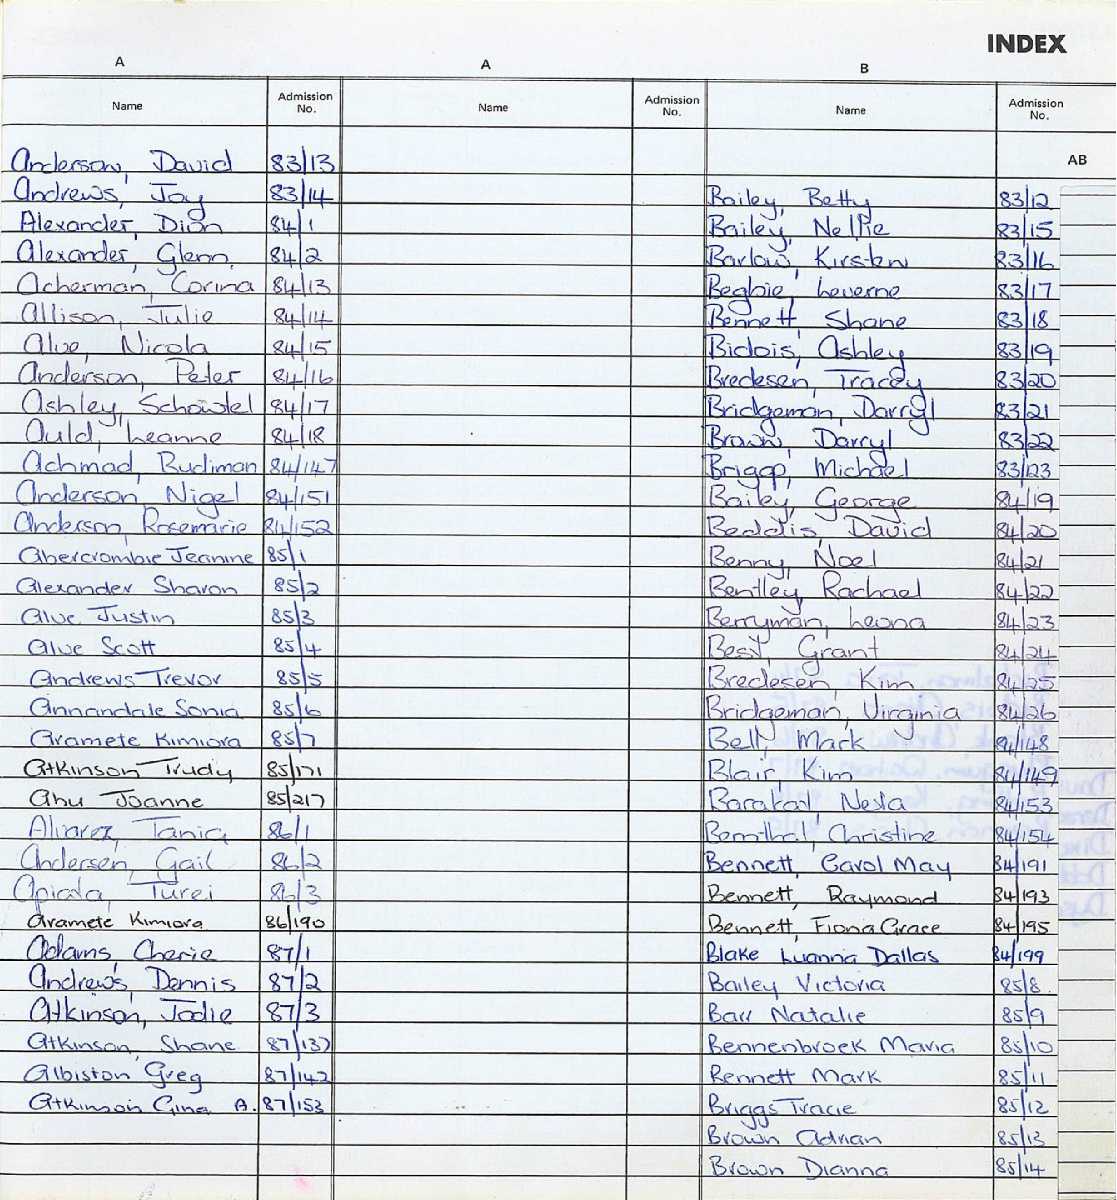 INDEX
A
A
B
Name
Admission No.
Name
Admission No.
Name
Admission No.
AB
Anderson, David 83/13
Andrews, Joy 83/14
Alexander, Dion 84/1
Alexander, Glenn 84/2
Acherman, Corina 84/13
Allison, Julie 84/14
Alve, Nicola 84/15
Anderson, Peter 84/16
Ashley, 84/17
Auld, Leanne 84/18
Achmad, Budiman 84/147
Anderson, Nigel 84/151
Anderson, Rosemarie 84/152
Abercrombie Jeanine 85/1
Alexander Sharon 85/2
Alve Justin 85/3
Alve Scott 85/4
Andrews Trevor 85/5
Annandale Sonia 85/6
Aramete Kimiora 85/7
Atkinson Trudy 85/171
Ahu Joanne 85/217
Alvarez, Tania 86/1
Andersen, Gail 86/2
Apiata, Turei 86/3
Aramete Kimiora 86/190
Adams, Cherie 87/1
Andrews, Dennis 87/2
Atkinson, Jodie 87/3
Atkinson, Shane 87/137
Albiston Greg 87/142
Atkinson Gina A. 87/153
Bailey, Betty 83/12
Bailey, Nellie 83/15
Barlow, Kirsten 83/16
Begbie, Leverne 83/17
Bennett, Shane 83/18
Bidois, Ashley 83/19
Bredesen, Tracey 83/20
Bridgeman, Darryl 83/21
Brown, Darryl 83/22
Briggs, Michael 83/23
Bailey, George 84/19
Beddis, David 84/20
Benny, Noel 84/21
Bentley, Rachael 84/22
Berryman, Leona 84/23
Best, Grant 84/24
Bredesen, Kim 84/25
Bridgeman, Virginia 84/26
Bell, Mark 84/148
Blair, Kim 84/149
84/153
Christine 84/154
Bennett, Carol May 84/191
Bennett, Raymond 84/193
Bennett, Fiona Grace 84/195
Blake Luanna Dallas 84/199
Bailey Victoria 85/8
Barr Natalie 85/9
Bennenbroek Maria 85/10
Bennett Mark 85/11
Briggs Tracie 85/12
Brown Adrian 85/13
Brown Dianna 85/14